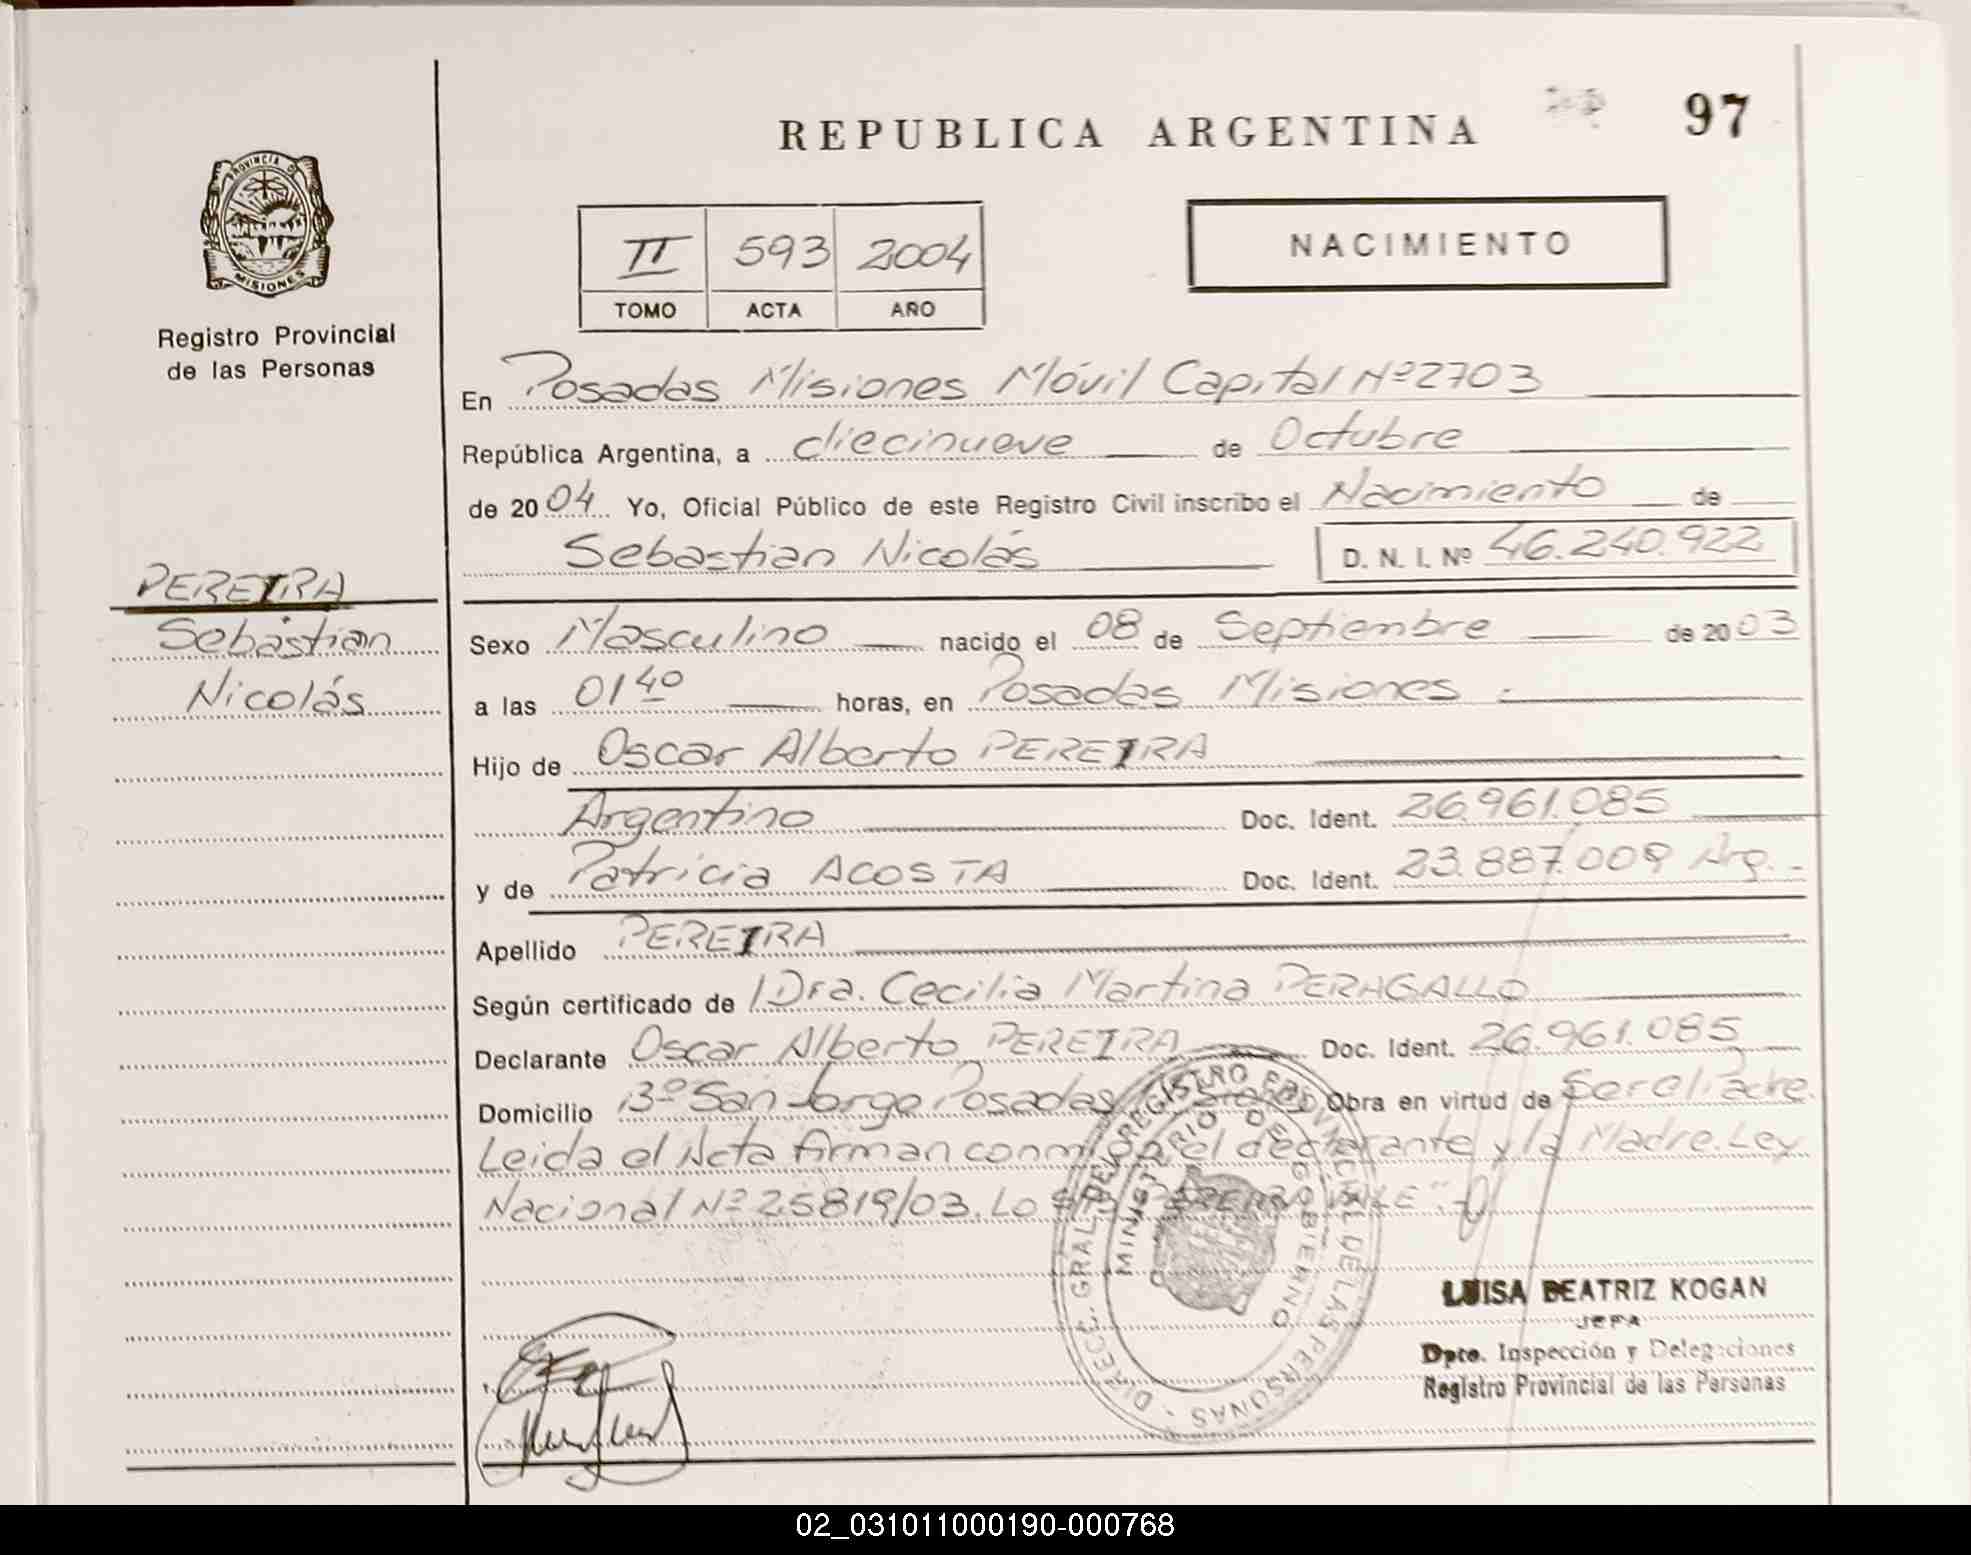 REPUBLICA ARGENTINA
97
PROVINCIA DE
MISIONES
Registro Provincial
de las Personas
II 593 2004
TOMO ACTA AÑO
NACIMIENTO
En Posadas Misiones Móvil Capital Nº 2703
República Argentina, a diecinueve de Octubre
de 2004 Yo, Oficial Público de este Registro Civil inscribo el Nacimiento de
Sebastian Nicolás D. N. I. Nº 46.240.922
PEREIRA
Sebastian
Nicolás
Sexo Masculino nacido el 08 de Septiembre de 2003
a las 01 40 horas, en Posadas Misiones.
Hijo de Oscar Alberto PEREIRA
Argentino Doc. Ident. 26.961.085
y de Patricia ACOSTA Doc. Ident. 23.887.009 Arg.
Apellido PEREIRA
Según certificado de Dra. Cecilia Martina PERAGALLO
Declarante Oscar Alberto PEREIRA Doc. Ident. 26.961.085
Domicilio Bº San Jorge Posadas Obra en virtud de Ser el Padre.
Leida el Acta firman conmigo, el declarante y la Madre. Ley
Nacional Nº 25819/03. Lo VALE".
DIRECC. GRAL. DEL REGISTRO PROVINCIAL DE LAS PERSONAS
MINISTERIO DE GOBIERNO
LUISA BEATRIZ KOGAN
JEFA
Dpto. Inspección y Delegaciones
Registro Provincial de las Personas
02_031011000190-000768